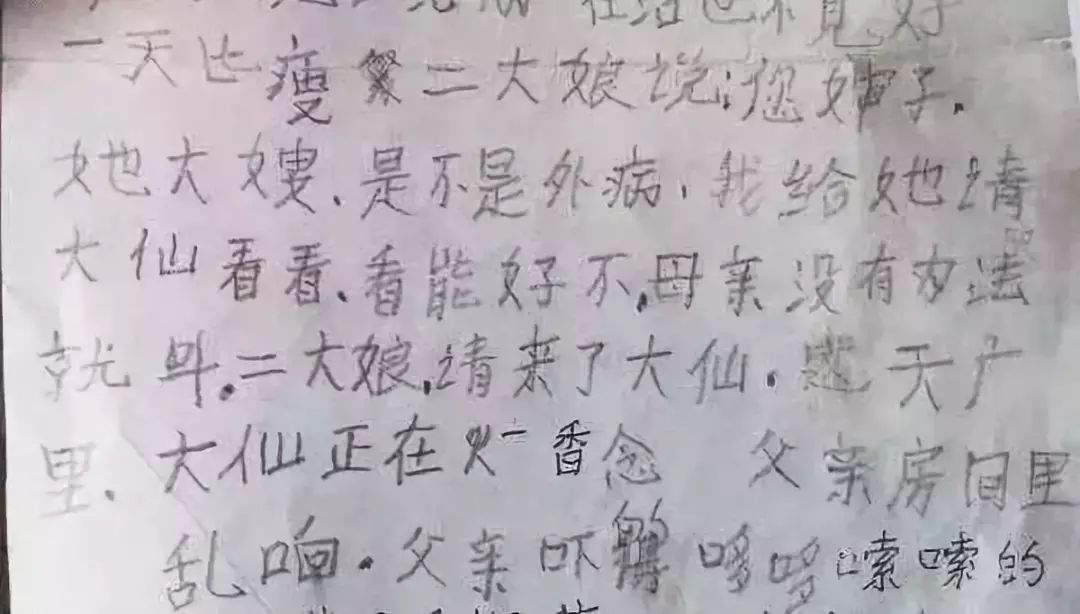 在治也不见好
一天比瘦繁二大娘说:您婶子.
她大嫂.是不是外病.我给她请
大仙看看.看能好不.母亲没有办法
就叫.二大娘.请来了大仙.天广
里.大仙正在火香念 父亲房间里
乱响.父亲吓的哆哆嗦嗦的